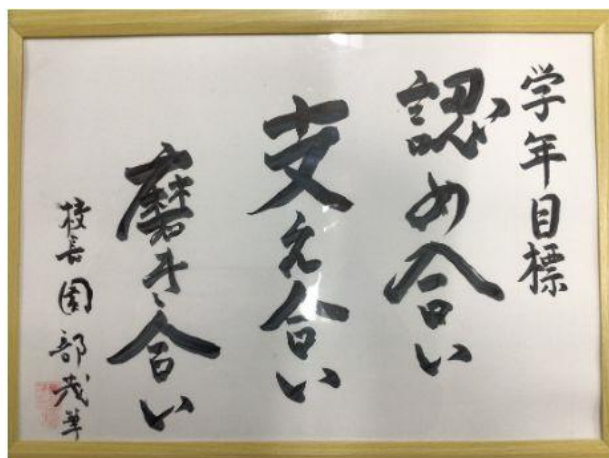 学年目標
認め合い
支え合い
磨き合い
校長 園部